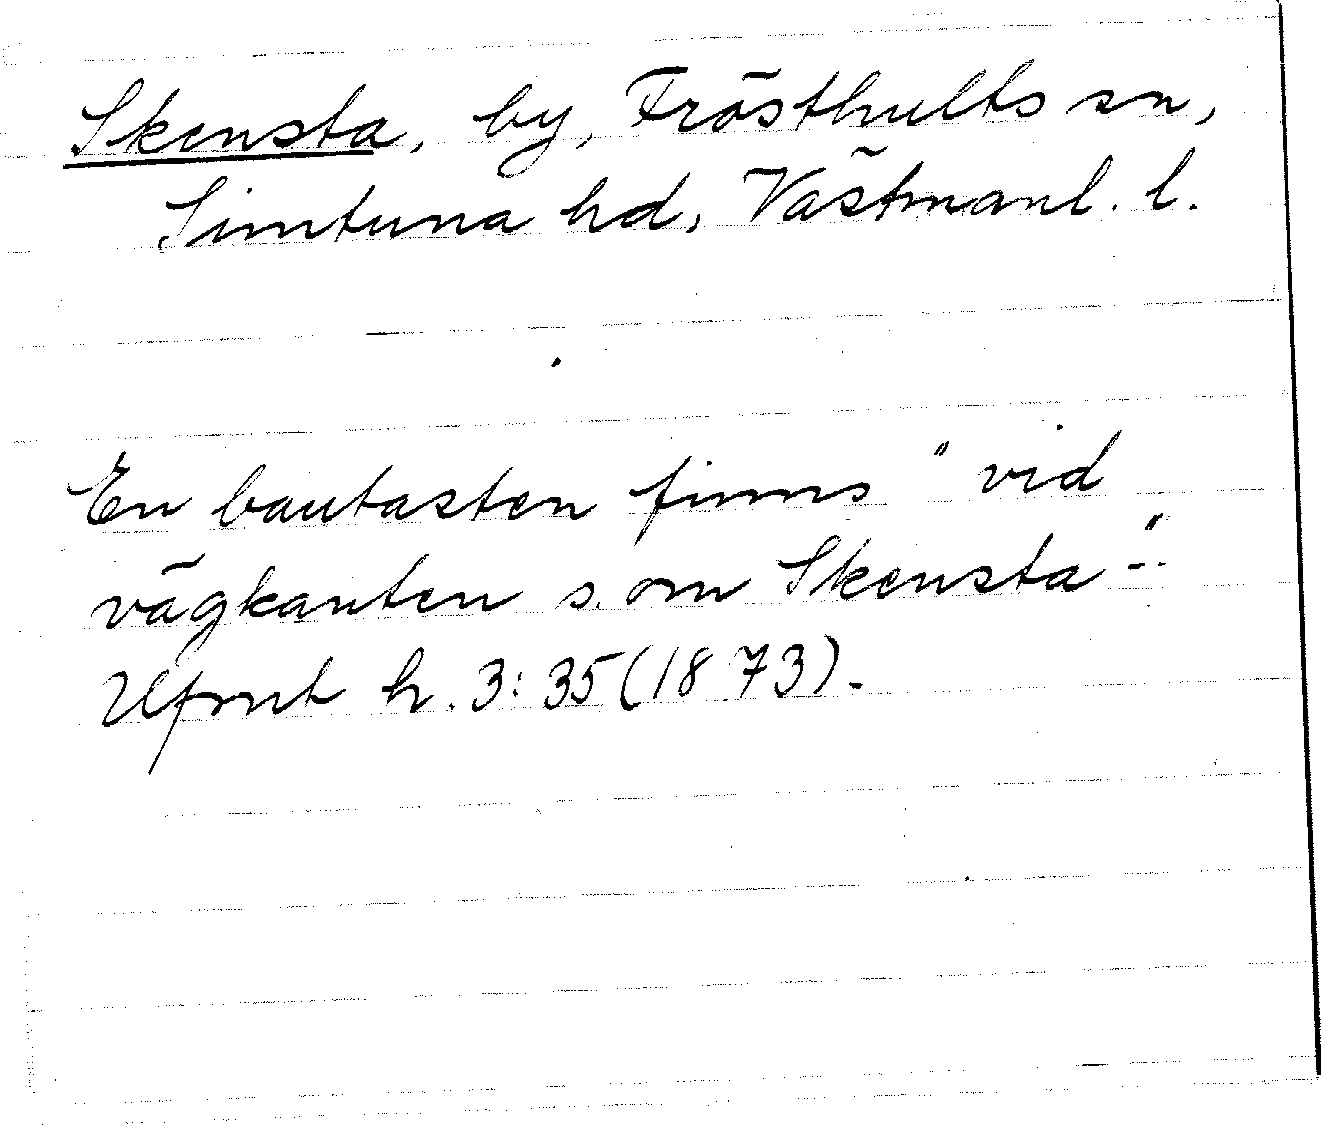 Skensta, by, Frösthults sn,
Simtuna hd, Västmanl. l.
En bautasten finns "vid
vägkanten s. om Skensta".
Ufmt h. 3:35 (1873).